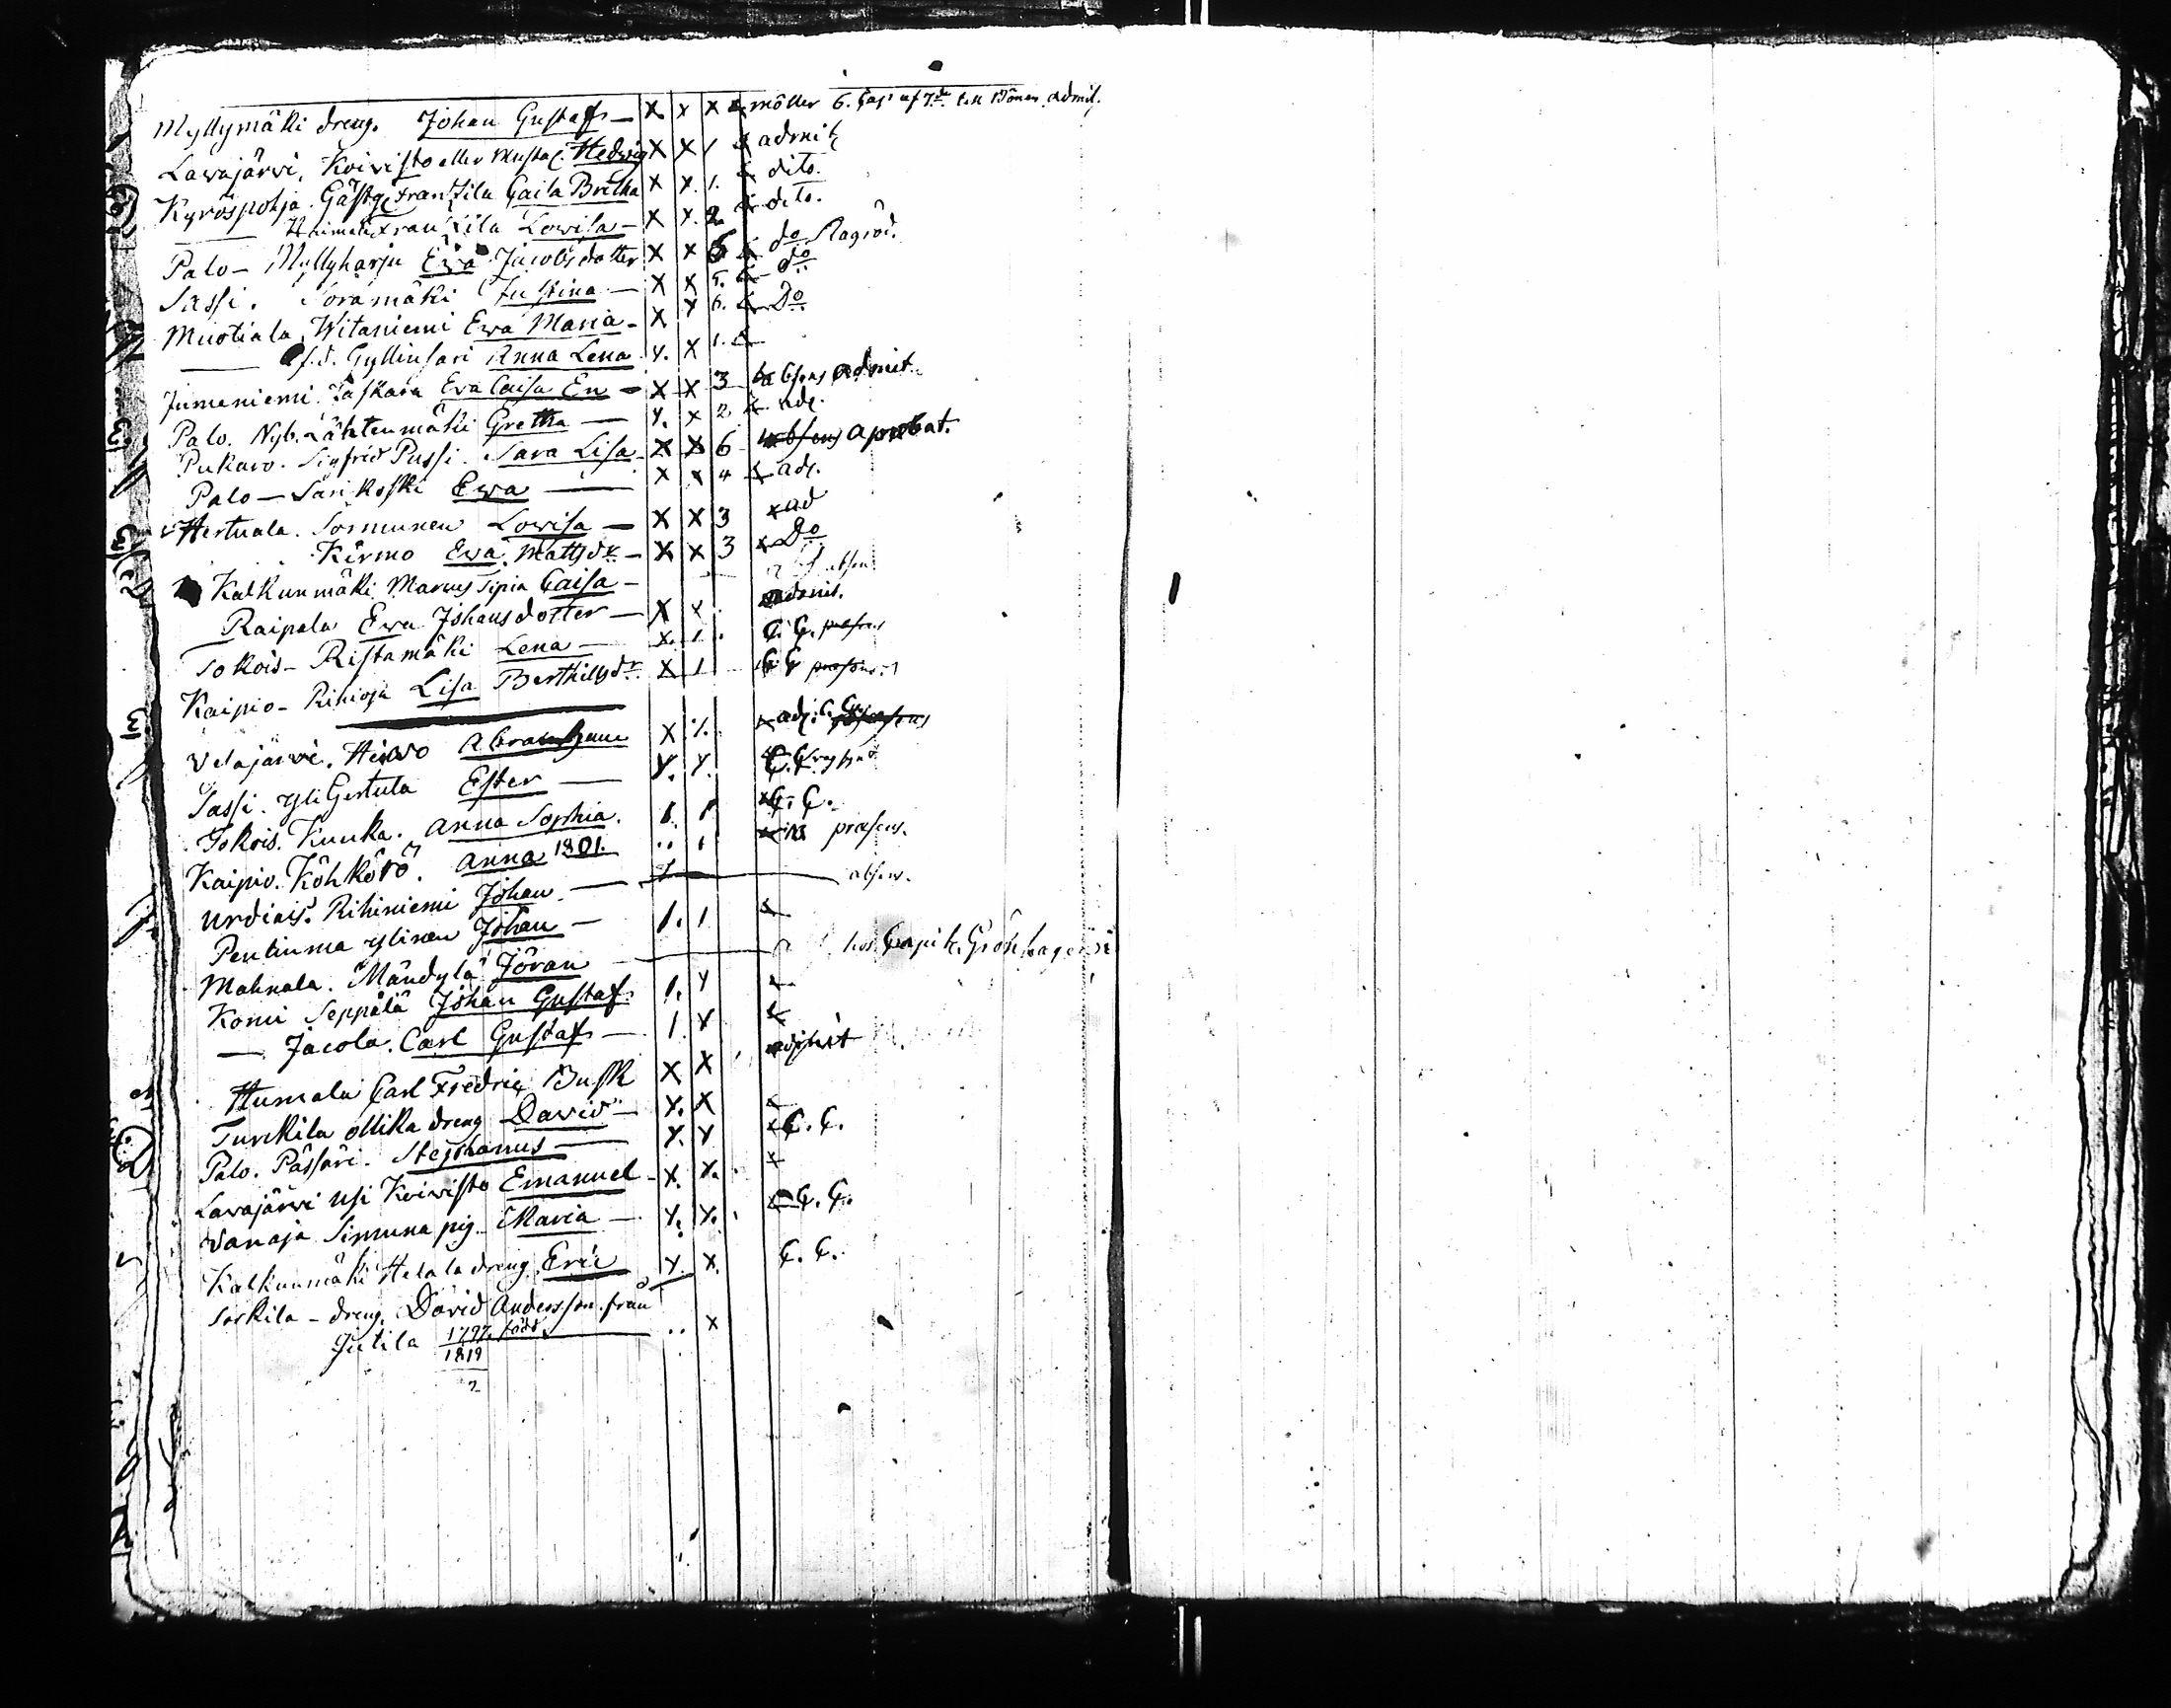 Myllymäki dreng. Johan Gustaf — X X X möller 6. Cap af 7de till Bönen. admit.
Lavajärvi. Koivisto eller Mustaj. Hedwig X X 1 x admit
Kyröspohja. Gästg. Frantsila Caisa Britha X X. 1. x dito.
— Heimali Frantsila Lowisa — X X. 2 x dito.
Palo — Myllyharju Ewa Jacobsdotter X X 6 x do
Sassi. Soramäki Justina — X X 5. x do
Muotiala. Witaniemi Ewa Maria — X X 6. x Do
— Gyllinsari Anna Lena X. X 1. x
Jumeniemi. Taskara Ewa Caisa En — X X 3 absens admit.
Palo. Nyb. Lähtenmäki Gretha — X. X 2 x adj.
Pukaro. Sigfrid Pussi. Sara Lisa X X 6 absens aprobat.
Palo — Särikoski Ewa — X X 4 x adj.
Hertuala. Sormunen Lowisa — X X 3 x ad
Kirmo Ewa Mattsdr — X X 3 x Do
Kalkunmäki Marcus Sipia Caisa — absens
Raipala Ewa Johansdotter — X X admit.
Tokois — Ristamäki Lena — X. 1. C. C. præsens
Kaipio — Rihioja Lisa Berthilsdr X 1 C C præsens
Velajärvi. Heiwo Abraham X 1. x adj. C. C.
Sassi. Yli Gertula Ester — X. X. C. C.
Tokois. Kuuka. Anna Sophia. 1. 1 x C. C.
Kaipio. Köhkörö. Anna 1801. .. 1 præsens.
Urdiais. Rihiniemi Johan — absens.
Pentinma Ylinen Johan — 1. 1 x
Mahnala. Mändylä Jöran — hos Capit. Grönhagen
Komi Seppälä Johan Gustaf 1. X x
— Jacola. Carl Gustaf — 1 X x
Humala Carl Fredric Busk X X
Turckila Ollika dreng David — X. X x
Palo. Passari. Stephanus — X. X x C. C.
Lavajärvi Usi Koivisto Emanuel — X. X. x
Vanaja Simuna pig. Maria — X. X. x C. C.
Kalkunmäki Helala dreng Eric X. X. C. C.
Soskila — dreng. David Andersson från
Jutila 1797 född .. X
1819
2